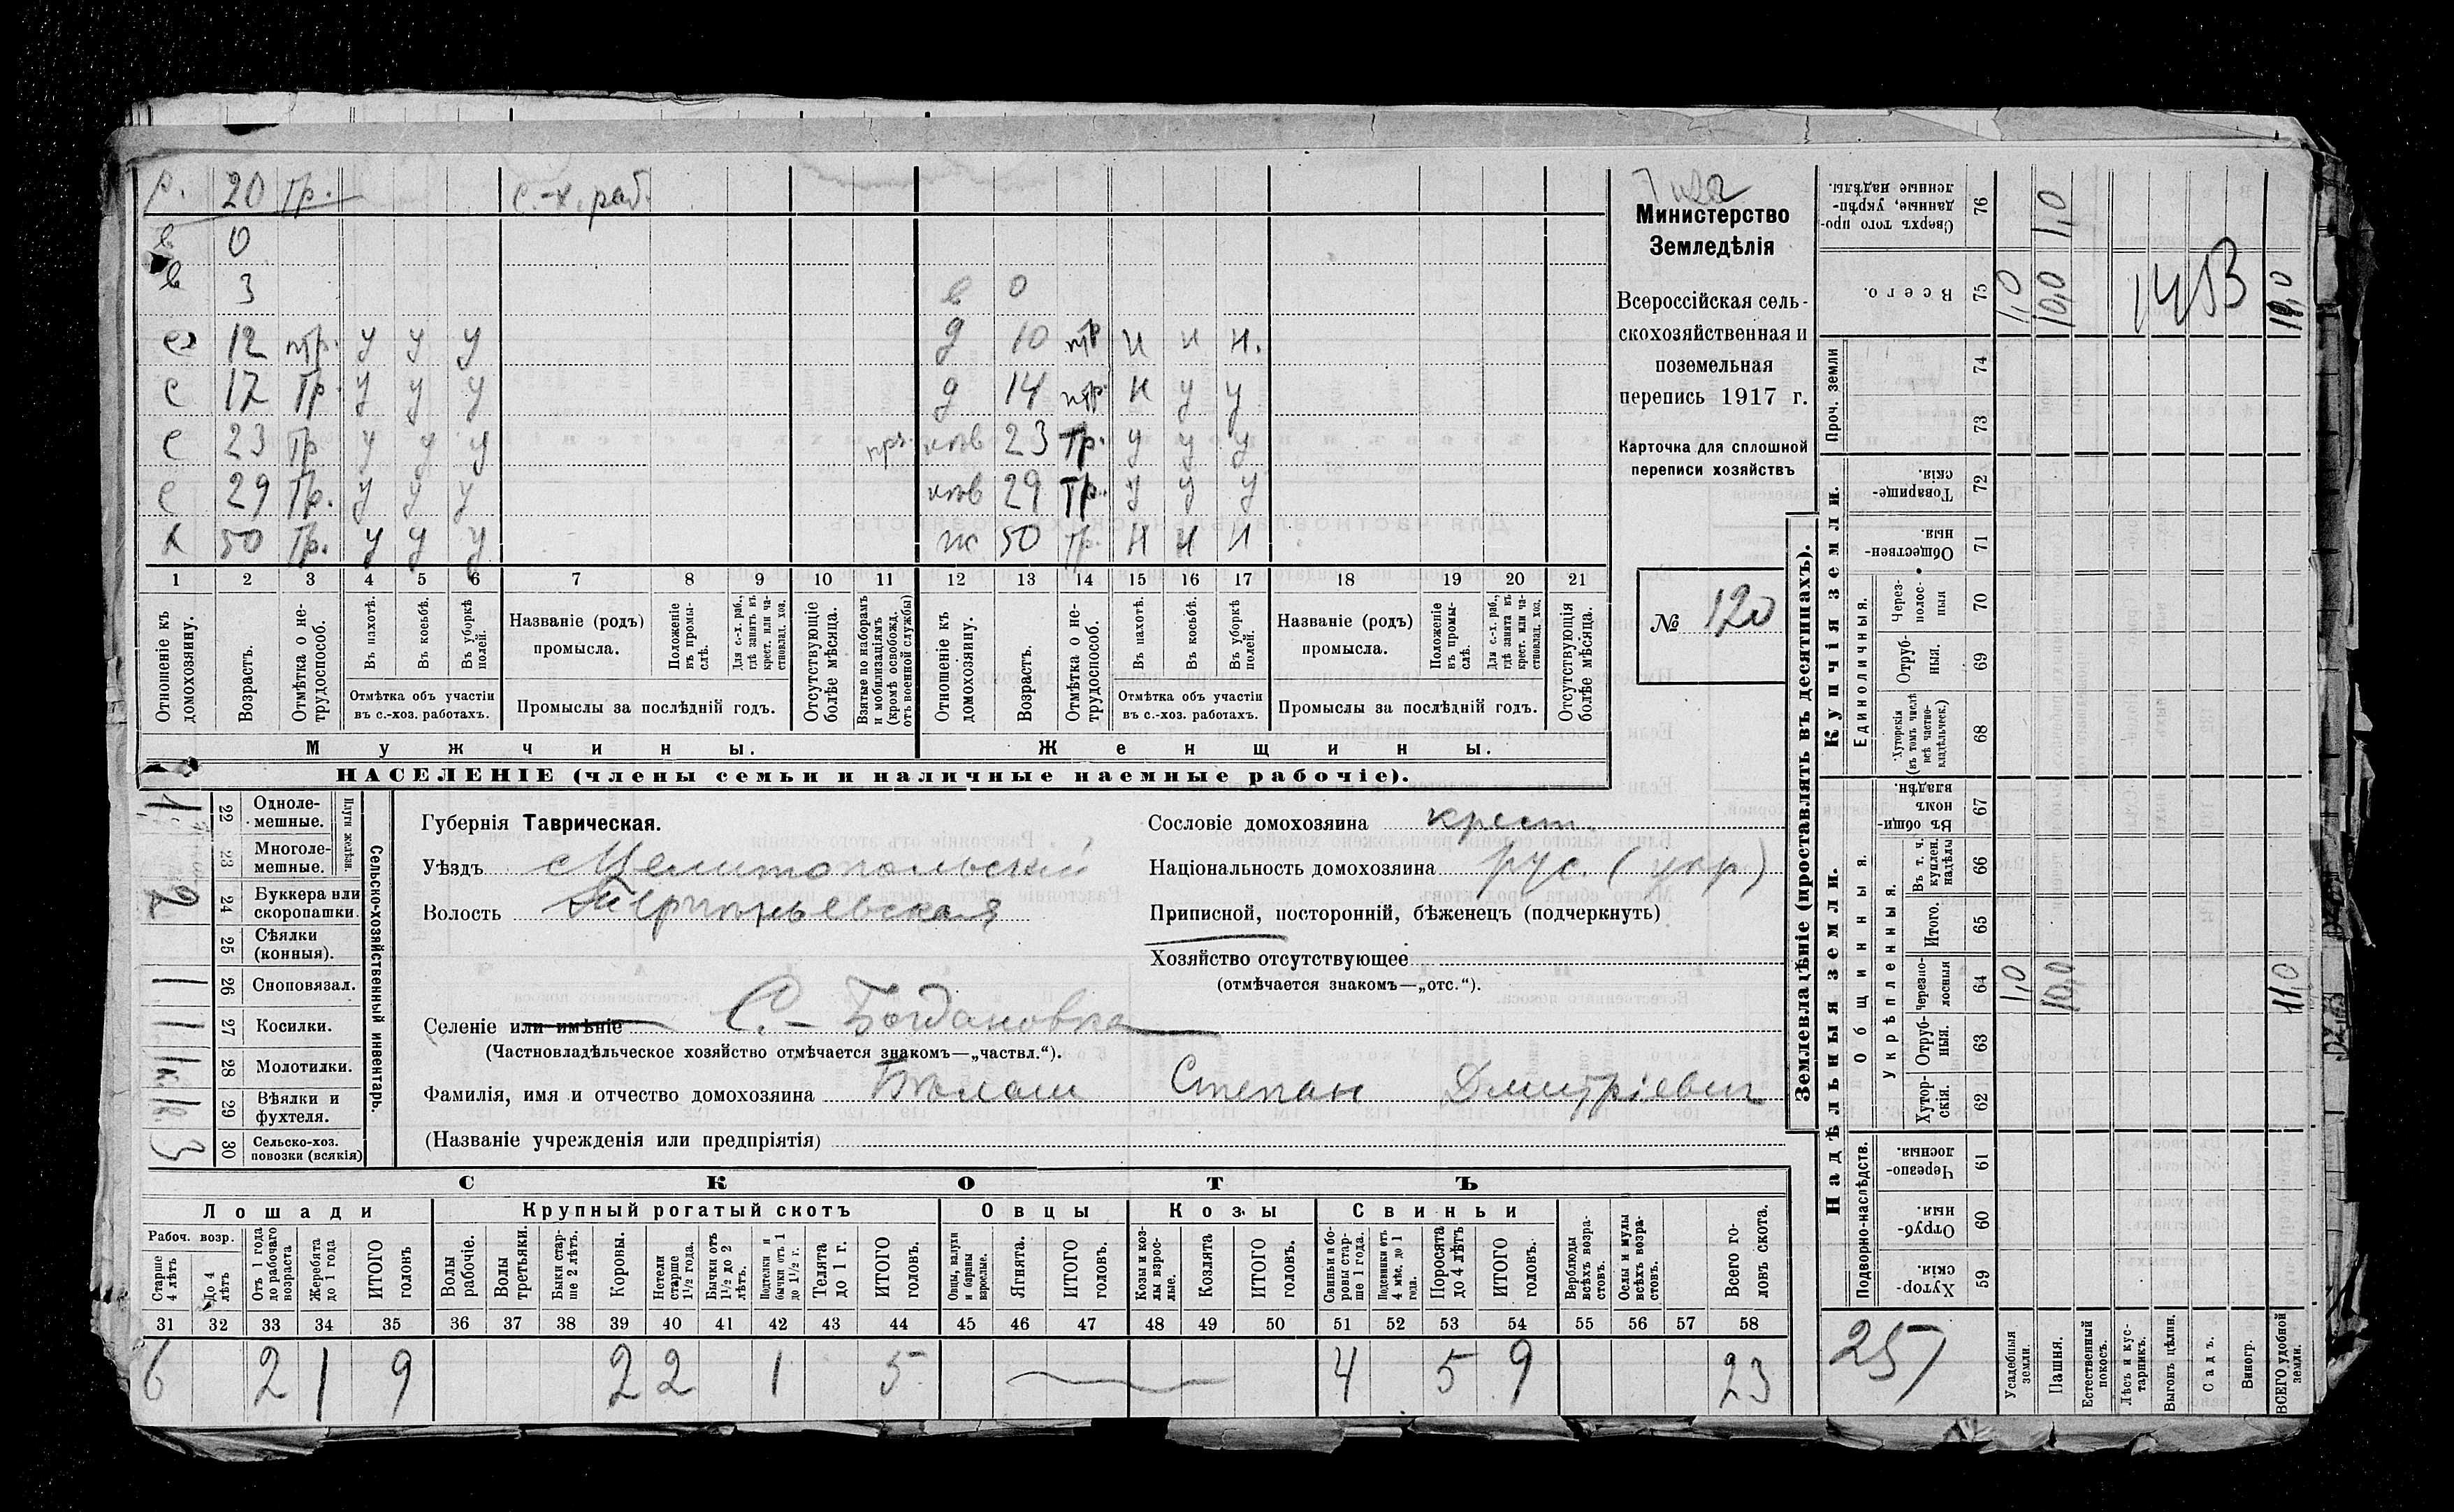 р. 20 тр. с.-х. раб.
в 0
в 3 в 0
с 12 нтр. у у у д 10 нтр н н н.
с 17 тр. у у у д 14 нтр. н у у
с 23 тр у у у нев 23 тр. у у у
с 29 тр. у у у нев 29 тр. у у у
х 50 тр. у у у ж 50 тр. н н н
1 2 3 4 5 6 7 8 9 10 11 12 13 14 15 16 17 18 19 20 21
Отношеніе къ домохозяину.
Возрастъ.
Отмѣтка о не-
трудоспособ.
Въ пахотѣ.
Въ косьбѣ.
Въ уборкѣ полей.
Отмѣтка объ участіи
въ с.-хоз. работахъ.
Названіе (родъ)
промысла.
Положеніе въ промы-
слѣ.
Для с.-х. раб., гдѣ занятъ въ крест. или ча-
стновлад. хоз.
Промыслы за послѣдній годъ.
Отсутствующіе болѣе мѣсяца.
Взятые по наборамъ и мобилизаціямъ (кромѣ освобожд. отъ военной службы)
Отношеніе къ домохозяину.
Возрастъ.
Отмѣтка о не-
трудоспособ.
Въ пахотѣ.
Въ косьбѣ.
Въ уборкѣ полей.
Отмѣтка объ участіи
въ с.-хоз. работахъ.
Названіе (родъ)
промысла.
Положеніе въ промы-
слѣ.
Для с.-х. раб., гдѣ занята въ крест. или ча-
стновлад. хоз.
Промыслы за послѣдній годъ.
Отсутствующія болѣе мѣсяца.
Мужчины. Женщины.
НАСЕЛЕНІЕ (члены семьи и наличные наемные рабочіе).
Министерство
Земледѣлія
Всероссійская сель-
скохозяйственная и
поземельная
перепись 1917 г.
Карточка для сплошной
переписи хозяйствъ
№ 120
Губернія Таврическая.
Уѣздъ Мелитопольскій
Волость Терпѣньевская
Селеніе или имѣніе С. - Богдановка
(Частновладѣльческое хозяйство отмѣчается знакомъ—„частвл.“).
Фамилія, имя и отчество домохозяина Степан Дмитріевич
(Названіе учрежденія или предпріятія)
Сословіе домохозяина крест.
Національность домохозяина рус. (укр.)
Приписной, посторонній, бѣженецъ (подчеркнуть)
Хозяйство отсутствующее
(отмѣчается знакомъ—„отс.“).
Сельско-хозяйственный инвентарь.
Плуги желѣзн.
22 Одноле-
мешные. 1
23 Многоле-
мешные.
24 Буккера или
скоропашки. 2
25 Сѣялки
(конныя).
26 Сноповязал. 1
27 Косилки. 1
28 Молотилки. 1к
29 Вѣялки и
фухтеля. 1
30 Сельско-хоз.
повозки (всякія) 3
СКОТЪ
Лошади Крупный рогатый скотъ Овцы Козы Свиньи
Рабоч. возр.
Старше 4 лѣтъ
До 4 лѣтъ
Отъ 1 года до рабочаго возраста
Жеребята до 1 года
ИТОГО головъ
Волы рабочіе.
Волы третьяки.
Быки стар-
ше 2 лѣтъ.
Коровы.
Нетели старше 1½ года.
Бычки отъ 1½ до 2 лѣтъ.
Подтелки и бычки отъ 1 до 1½ г.
Телята до 1 г.
ИТОГО головъ.
Овцы, валухи и бараны взрослые.
Ягнята.
ИТОГО головъ.
Козы и коз-
лы взрос-
лые.
Козлята
ИТОГО головъ.
Свиньи и бо-
ровы стар-
ше 1 года.
Подсвинки отъ 4 мѣс. до 1 года.
Поросята до 4 лѣтъ
ИТОГО головъ.
Верблюды всѣхъ возра-
стовъ.
Ослы и мулы всѣхъ возра-
стовъ.
Всего го-
ловъ скота.
31 32 33 34 35 36 37 38 39 40 41 42 43 44 45 46 47 48 49 50 51 52 53 54 55 56 57 58
6 2 1 9 2 2 1 5 4 5 9 23
Землевладѣніе (проставлять въ десятинахъ).
Купчія земли.
Надѣльныя земли.
Сверхъ того про-
данные, укрѣп-
ленные надѣлы. 76 1,0
Всего. 75 1,0 10,0 1453 11,0
Проч. земли
74
73
Товарище-
скія. 72
Обществен-
ныя. 71
Единоличныя.
Через-
полос-
ныя 70
Отруб-
ныя. 69
Хуторскія (въ томъ числѣ всѣ частно-
владѣльческ.) 68
Общинныя.
Въ общи-
номъ владѣн. 67
Укрѣпленныя.
Въ т. ч. куплен. надѣлы 66
Итого. 65
Черезпо-
лосныя 64 1,0 10,0 11,0
Отруб-
ныя. 63
Хутор-
скія. 62
Подворно-наслѣдств.
Черезпо-
лосныя. 61
Отруб-
ныя. 60
Хутор-
скія. 59
257
Усадебныя земли.
Пашня.
Естественный покосъ.
Лѣсъ и кус-
тарникъ.
Выгонъ цѣлин.
Садъ.
Виногр.
ВСЕГО удобной земли.